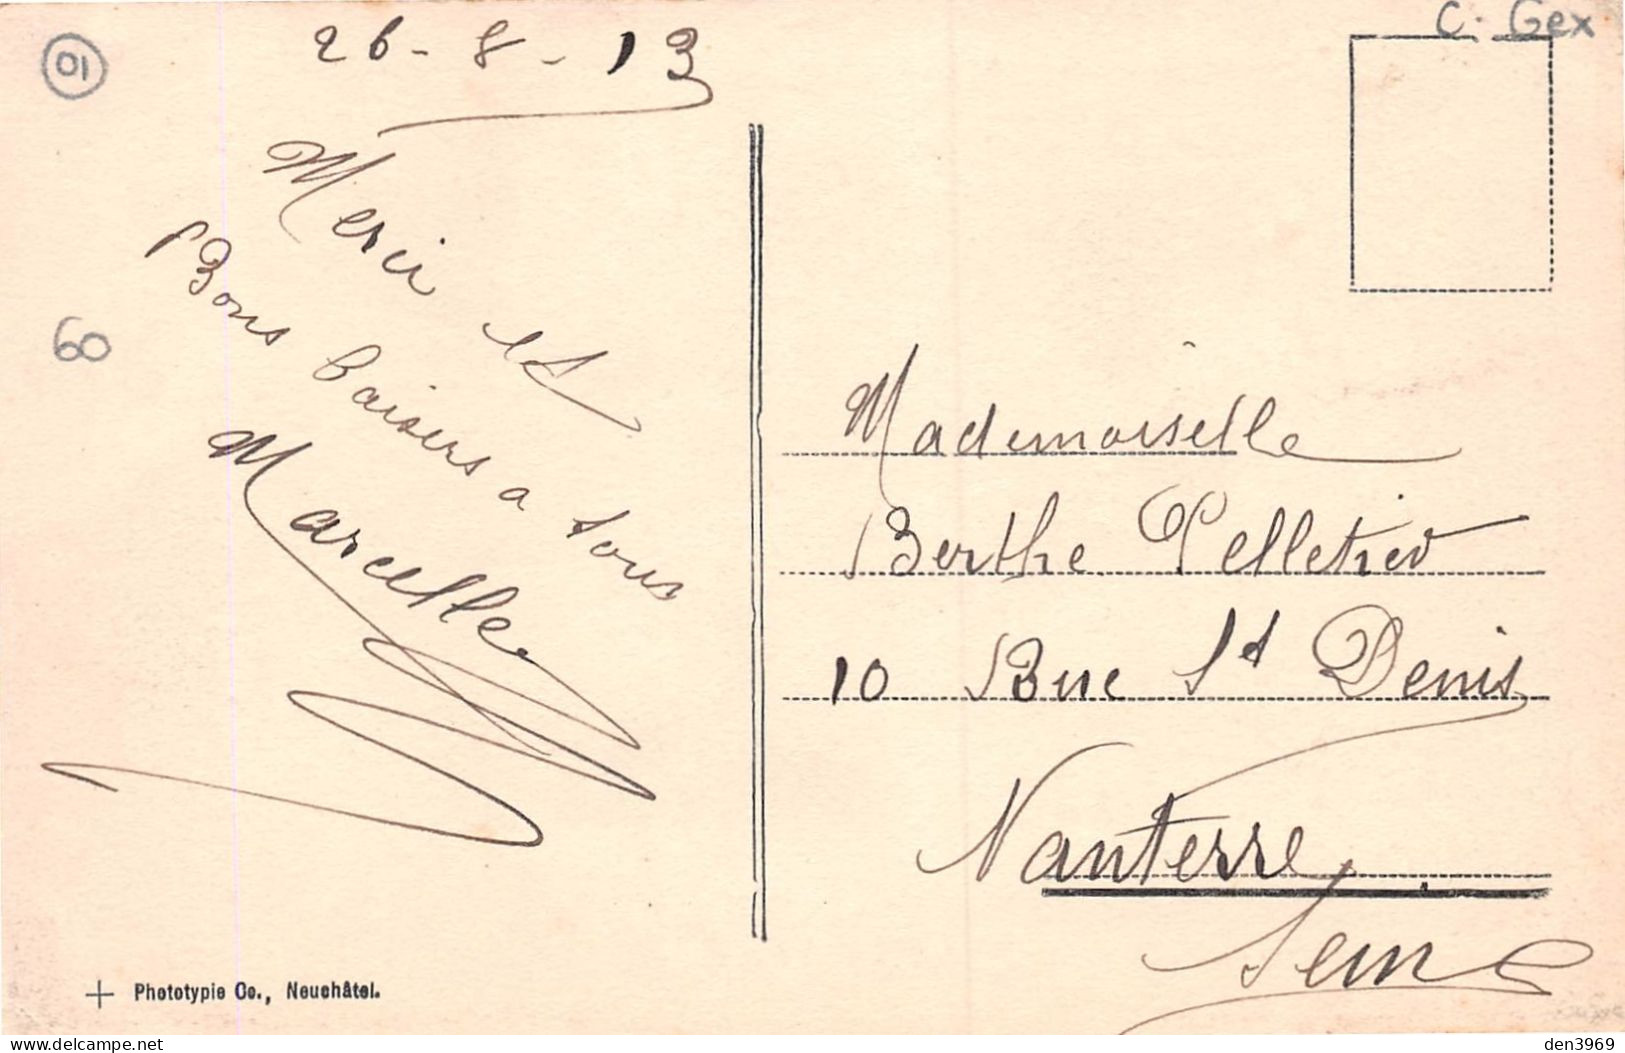 C. Gex
01
26-8-13
Merci et
Bons baisers a tous
Marcelle
60
Mademoiselle
Berthe Pelletier
10 Rue St Denis
Nanterre
Seine
Phototypie Co., Neuchâtel.
delcampe.net
den3969